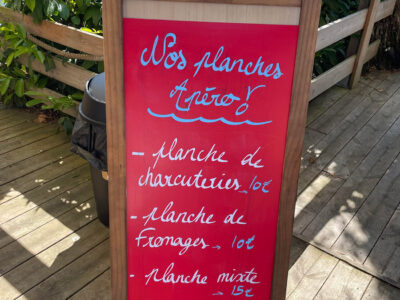 Nos planches
Apéro!
- planche de
charcuteries → 10€
- planche de
Fromages → 10€
- planche mixte
→ 15€